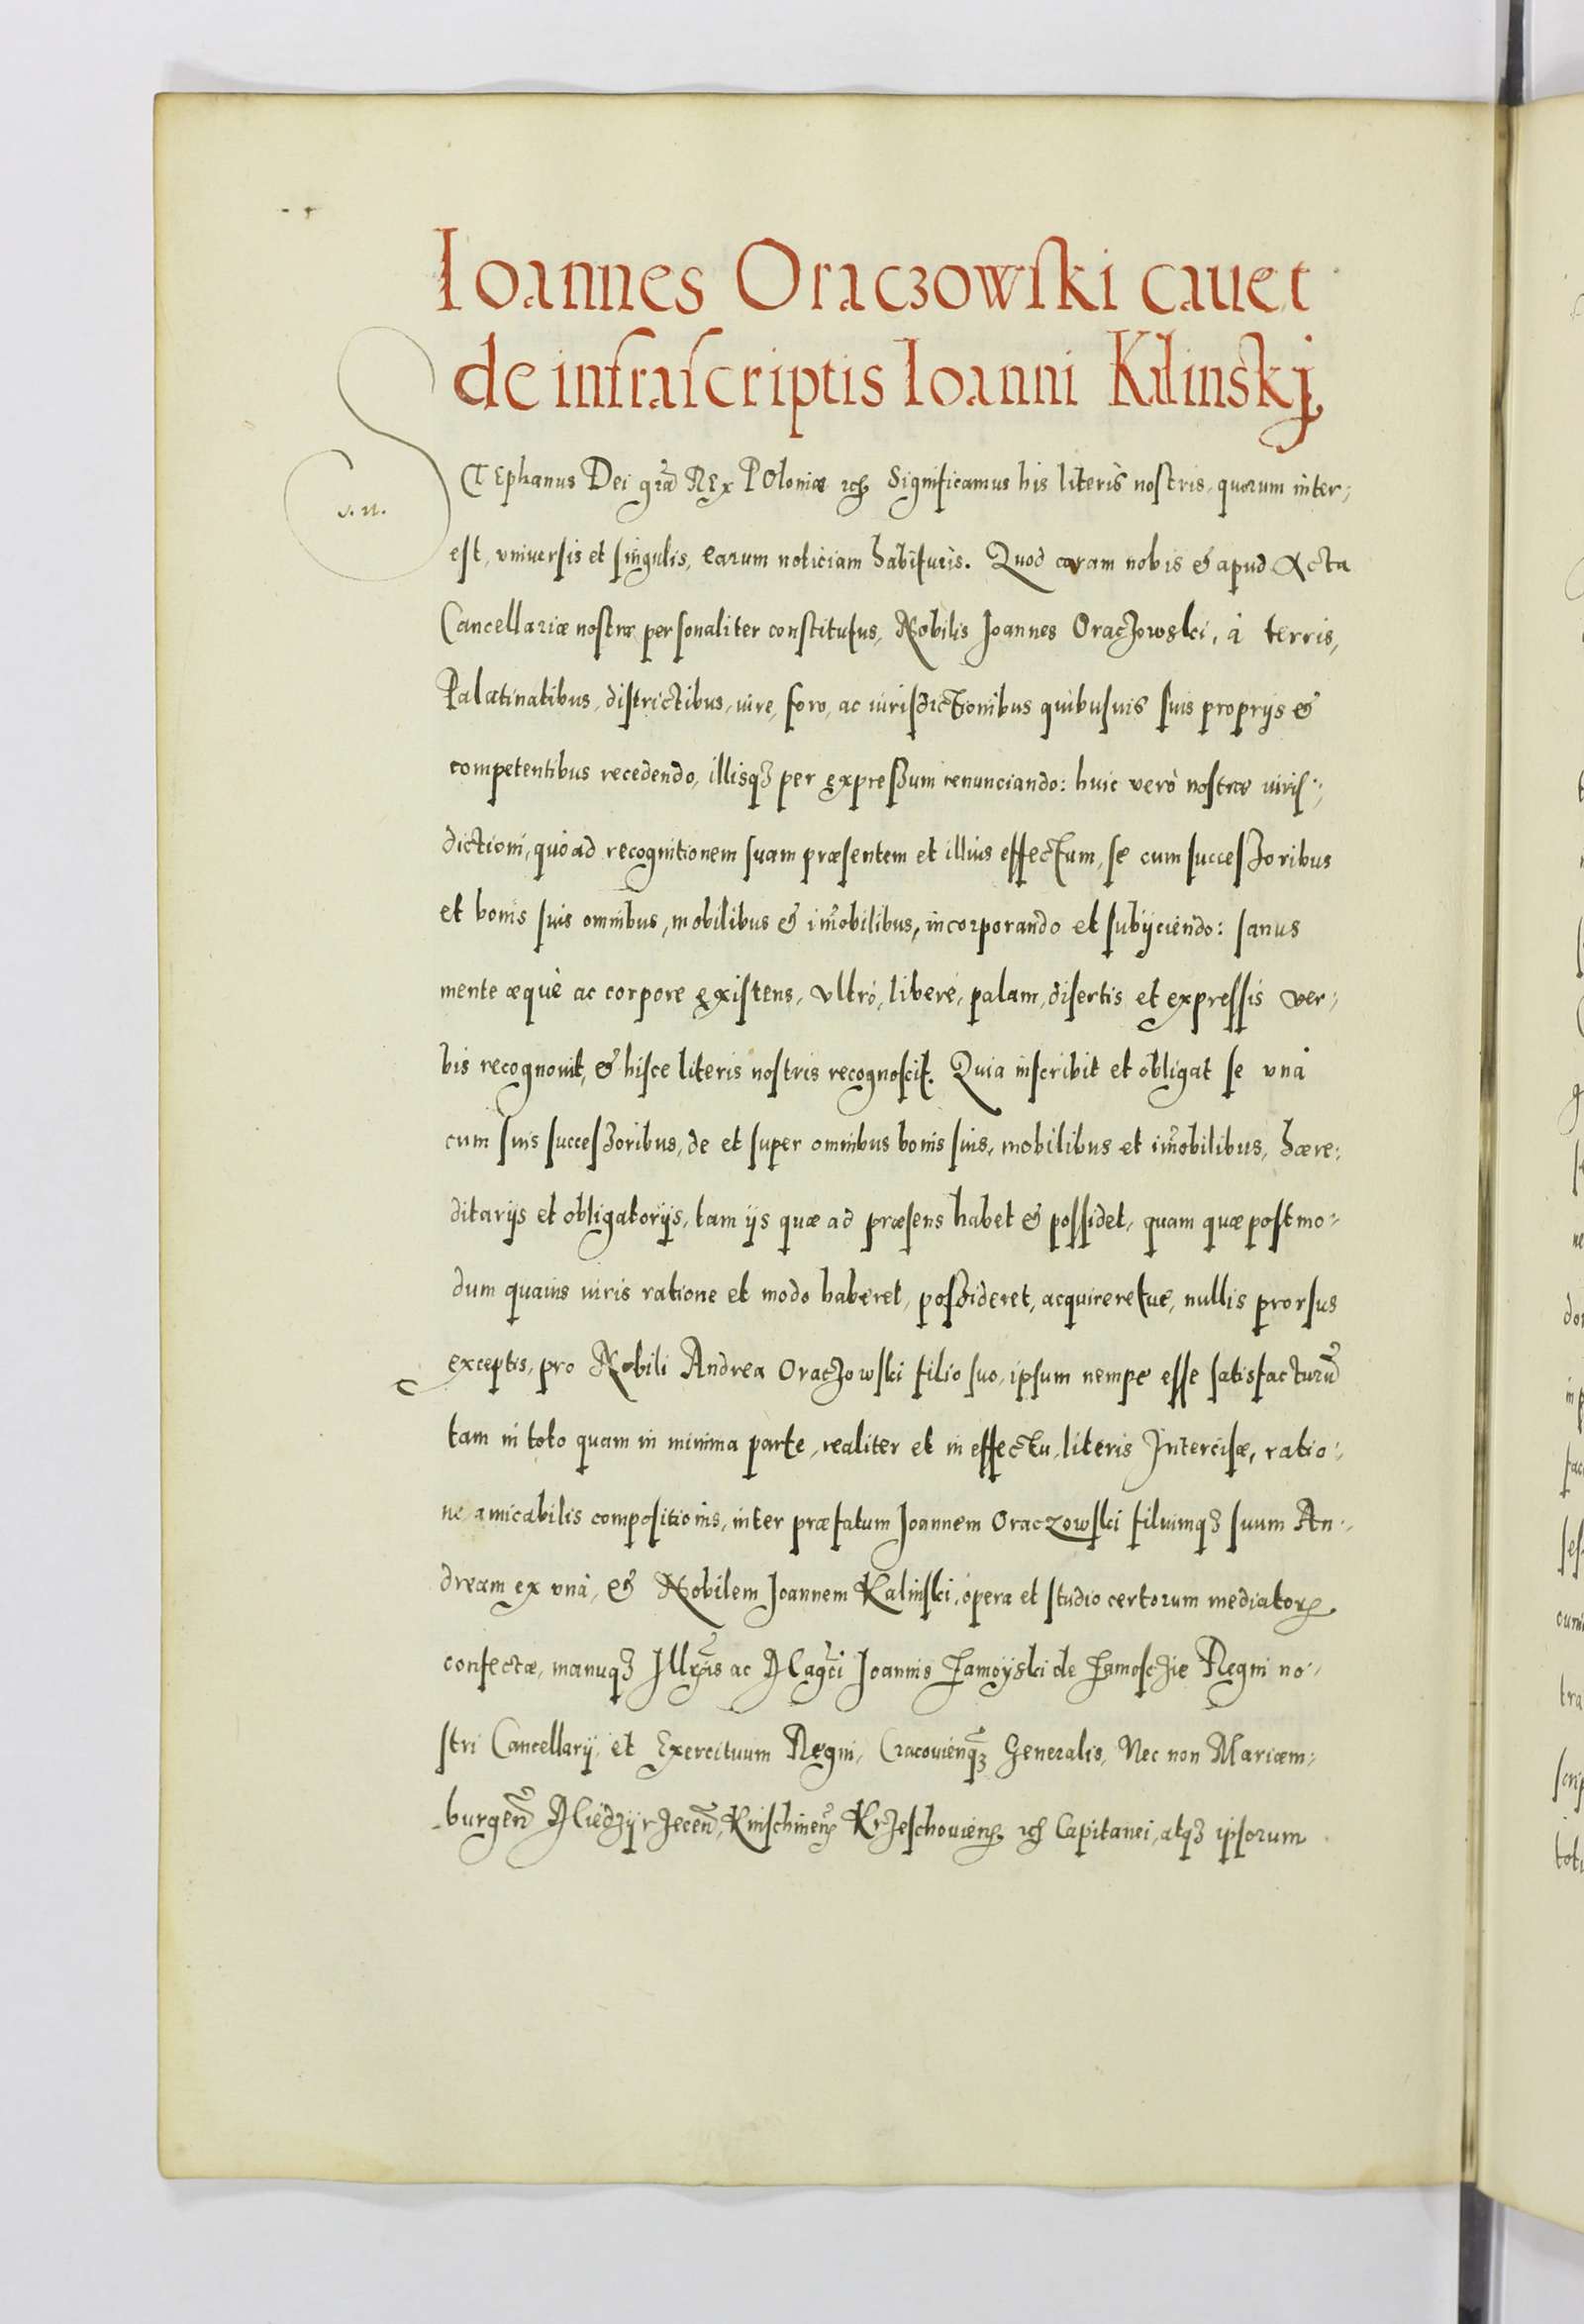 Ioannes Oraczowski cauet
de infrascriptis Ioanni Kilinskj
STEphanus Dei gr̃a REx POloniæ etc̃ Significamus his literis nostris, quorum inter:
est, vniuersis et singulis, earum noticiam habituris. Quod coram nobis & apud Acta
Cancellariæ nostræ personaliter constitutus, Nobilis Joannes Oraczowski, à terris,
Palatinatibus, districtibus, iure, foro, ac iurisdictionibus quibusuis suis proprijs &
competentibus recedendo, illisqȝ per expreßum renunciando: huic verò nostræ iuris:
dictioni, quòad recognitionem suam præsentem et illius effectum, se cum succeßoribus
et bonis suis omnibus, mobilibus & im̃obilibus, incorporando et subijciendo: sanus
mente æquè ac corpore existens, vltrò, liberè, palam, disertis et expressis ver:
bis recognouit, & hisce literis nostris recognoscit. Quia inscribit et obligat se vnà
cum suis succeßoribus, de et super omnibus bonis suis, mobilibus et im̃obilibus, hære:
ditarijs et obligatorijs, tam ijs quæ ad præsens habet & possidet, quam quæ postmo:
dum quauis iuris ratione et modo haberet, poßideret, acquireretue, nullis prorsus
exceptis, pro Nobili Andrea Oraczowski filio suo, ipsum nempe esse satisfacturũ
tam in toto quam in minima parte, realiter et in effectu, literis Intercisæ, ratio:
ne amicabilis compositionis, inter præfatum Joannem Oraczowski filiumqȝ suum An:
dream ex vnà, & Nobilem Joannem Kalinski, opera et studio certorum mediatorꝝ
confectæ, manuqȝ Illr̃is ac Magc̃i Joannis Zamoÿski de Zamosczie Regni no:
stri Cancellarij, et Exercituum Regni, Cracouien̄qȝ Generalis, Nec non Mariæm:
burgeñ Miedzÿrzeceñ, Knischineñ Krzeschouieñ. etc̃ Capitanei, atqȝ ipsorum